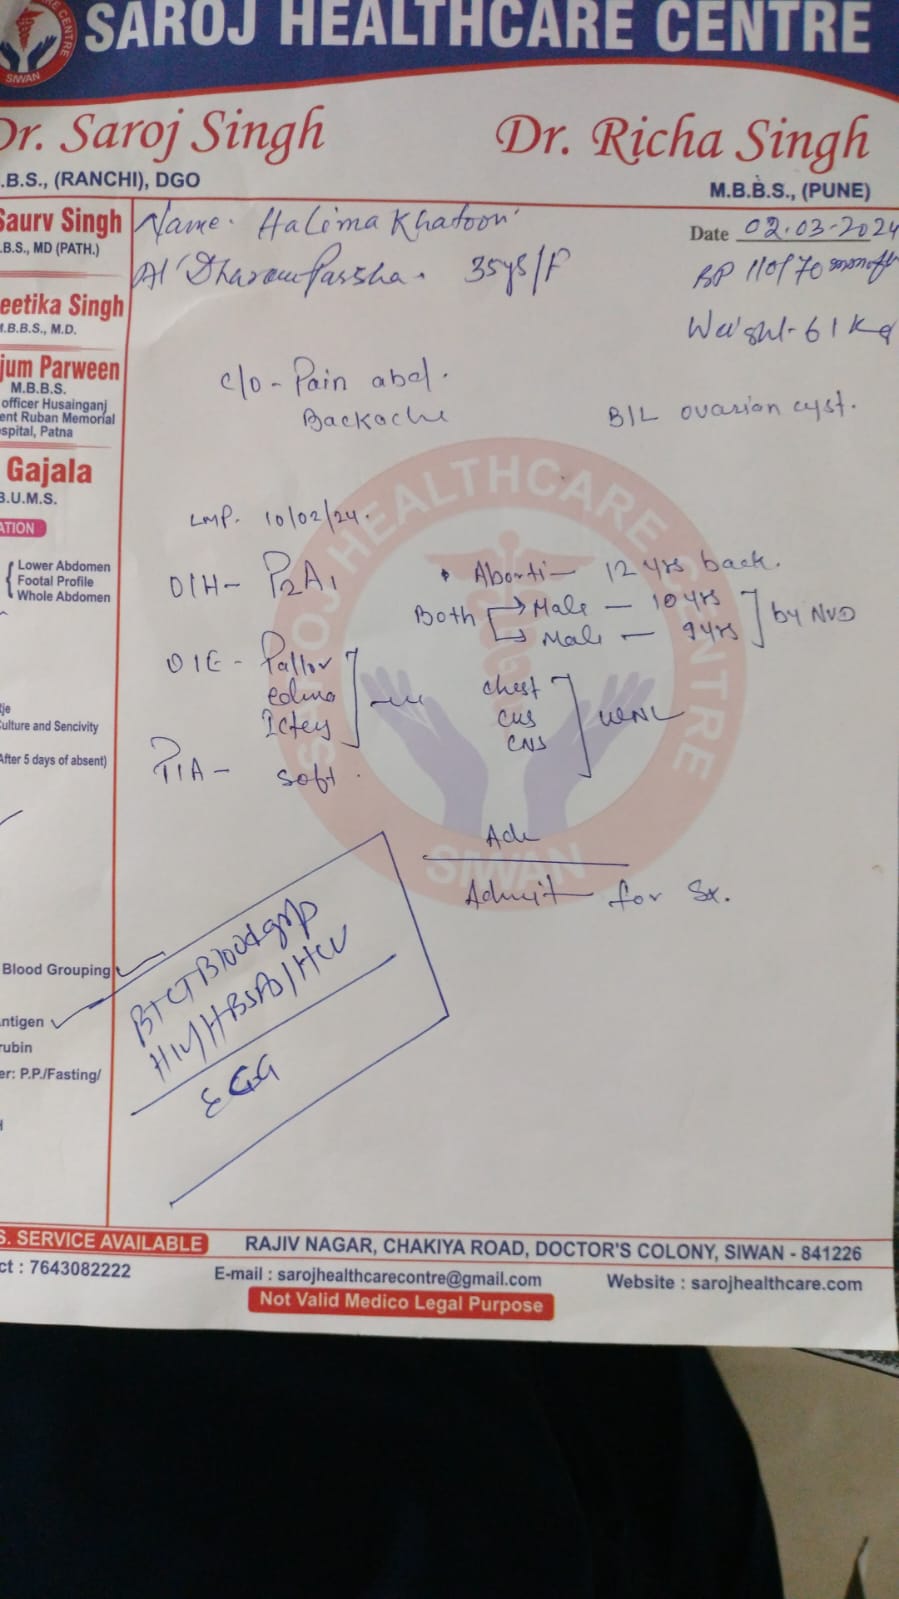 SAROJ HEALTHCARE CENTRE
CENTRE
SIWAN
Dr. Saroj Singh
Dr. Richa Singh
.B.S., (RANCHI), DGO
M.B.B.S., (PUNE)
Saurv Singh
.B.S., MD (PATH.)
eetika Singh
M.B.B.S., M.D.
jum Parween
M.B.B.S.
officer Husainganj
ent Ruban Memorial
spital, Patna
Gajala
B.U.M.S.
ATION
Lower Abdomen
Footal Profile
Whole Abdomen
Culture and Sencivity
After 5 days of absent)
Blood Grouping
ntigen
rubin
er: P.P./Fasting/
Name. Halima Khatoon
Date 02.03.2024
35ys/F
BP 110/70
Weight - 61 Kg
c/o - Pain abd.
Backache
B/L ovarian cyst.
LMP. 10/02/24.
O/H - P2A1
Aborti- 12 yrs back.
Both Male - 10 yrs
Male - 9 yrs
by NVD
O/E - Pallor
edima
Ictey
chest
CVS
CNS
WNL
P/A - soft.
Adv
Admit for Sx.
BTCT Blood grp
HIV/HBSAG/HCV
ECG
SAROJ HEALTHCARE CENTRE
SIWAN
S. SERVICE AVAILABLE
RAJIV NAGAR, CHAKIYA ROAD, DOCTOR'S COLONY, SIWAN - 841226
ct : 7643082222
E-mail : sarojhealthcarecontre@gmail.com
Website : sarojhealthcare.com
Not Valid Medico Legal Purpose